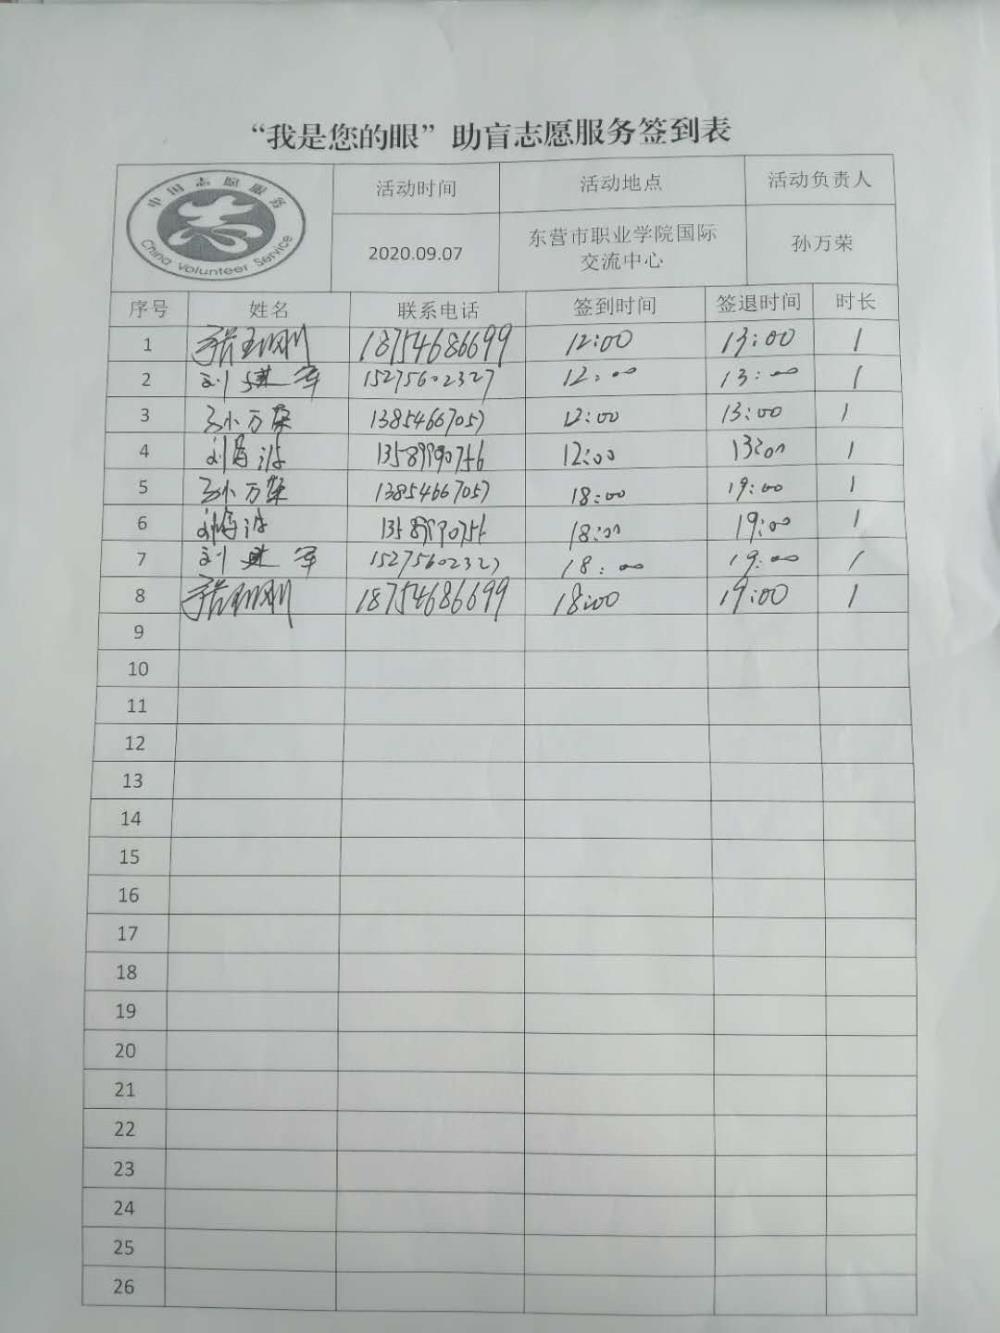 “我是您的眼”助盲志愿服务签到表
中国志愿服务
China Volunteer Service
活动时间 活动地点 活动负责人
2020.09.07 东营市职业学院国际 孙万荣
交流中心
序号 姓名 联系电话 签到时间 签退时间 时长
1 18754686699 12:00 13:00 1
2 刘建军 15275602327 12:00 13:00 1
3 孙万荣 13854667057 12:00 13:00 1
4 13589990756 12:00 13:00 1
5 孙万荣 13854667057 18:00 19:00 1
6 13589990756 18:00 19:00 1
7 刘建军 15275602327 18:00 19:00 1
8 18754686699 18:00 19:00 1
9
10
11
12
13
14
15
16
17
18
19
20
21
22
23
24
25
26